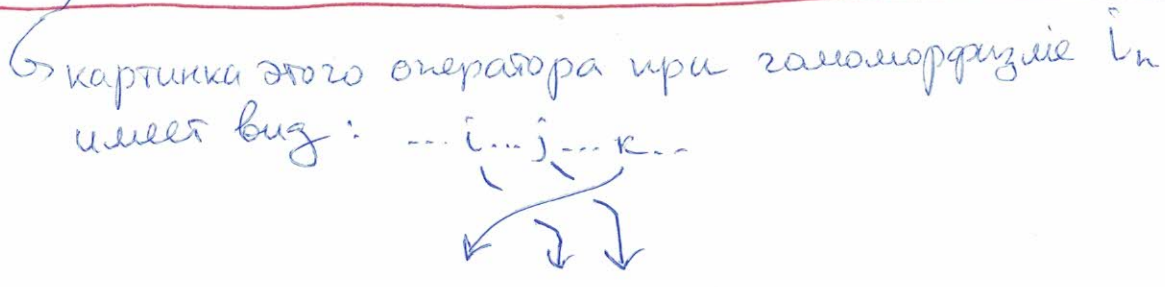 картинка этого оператора при гомоморфизме i_n
имеет вид: ... i ... j ... k ...